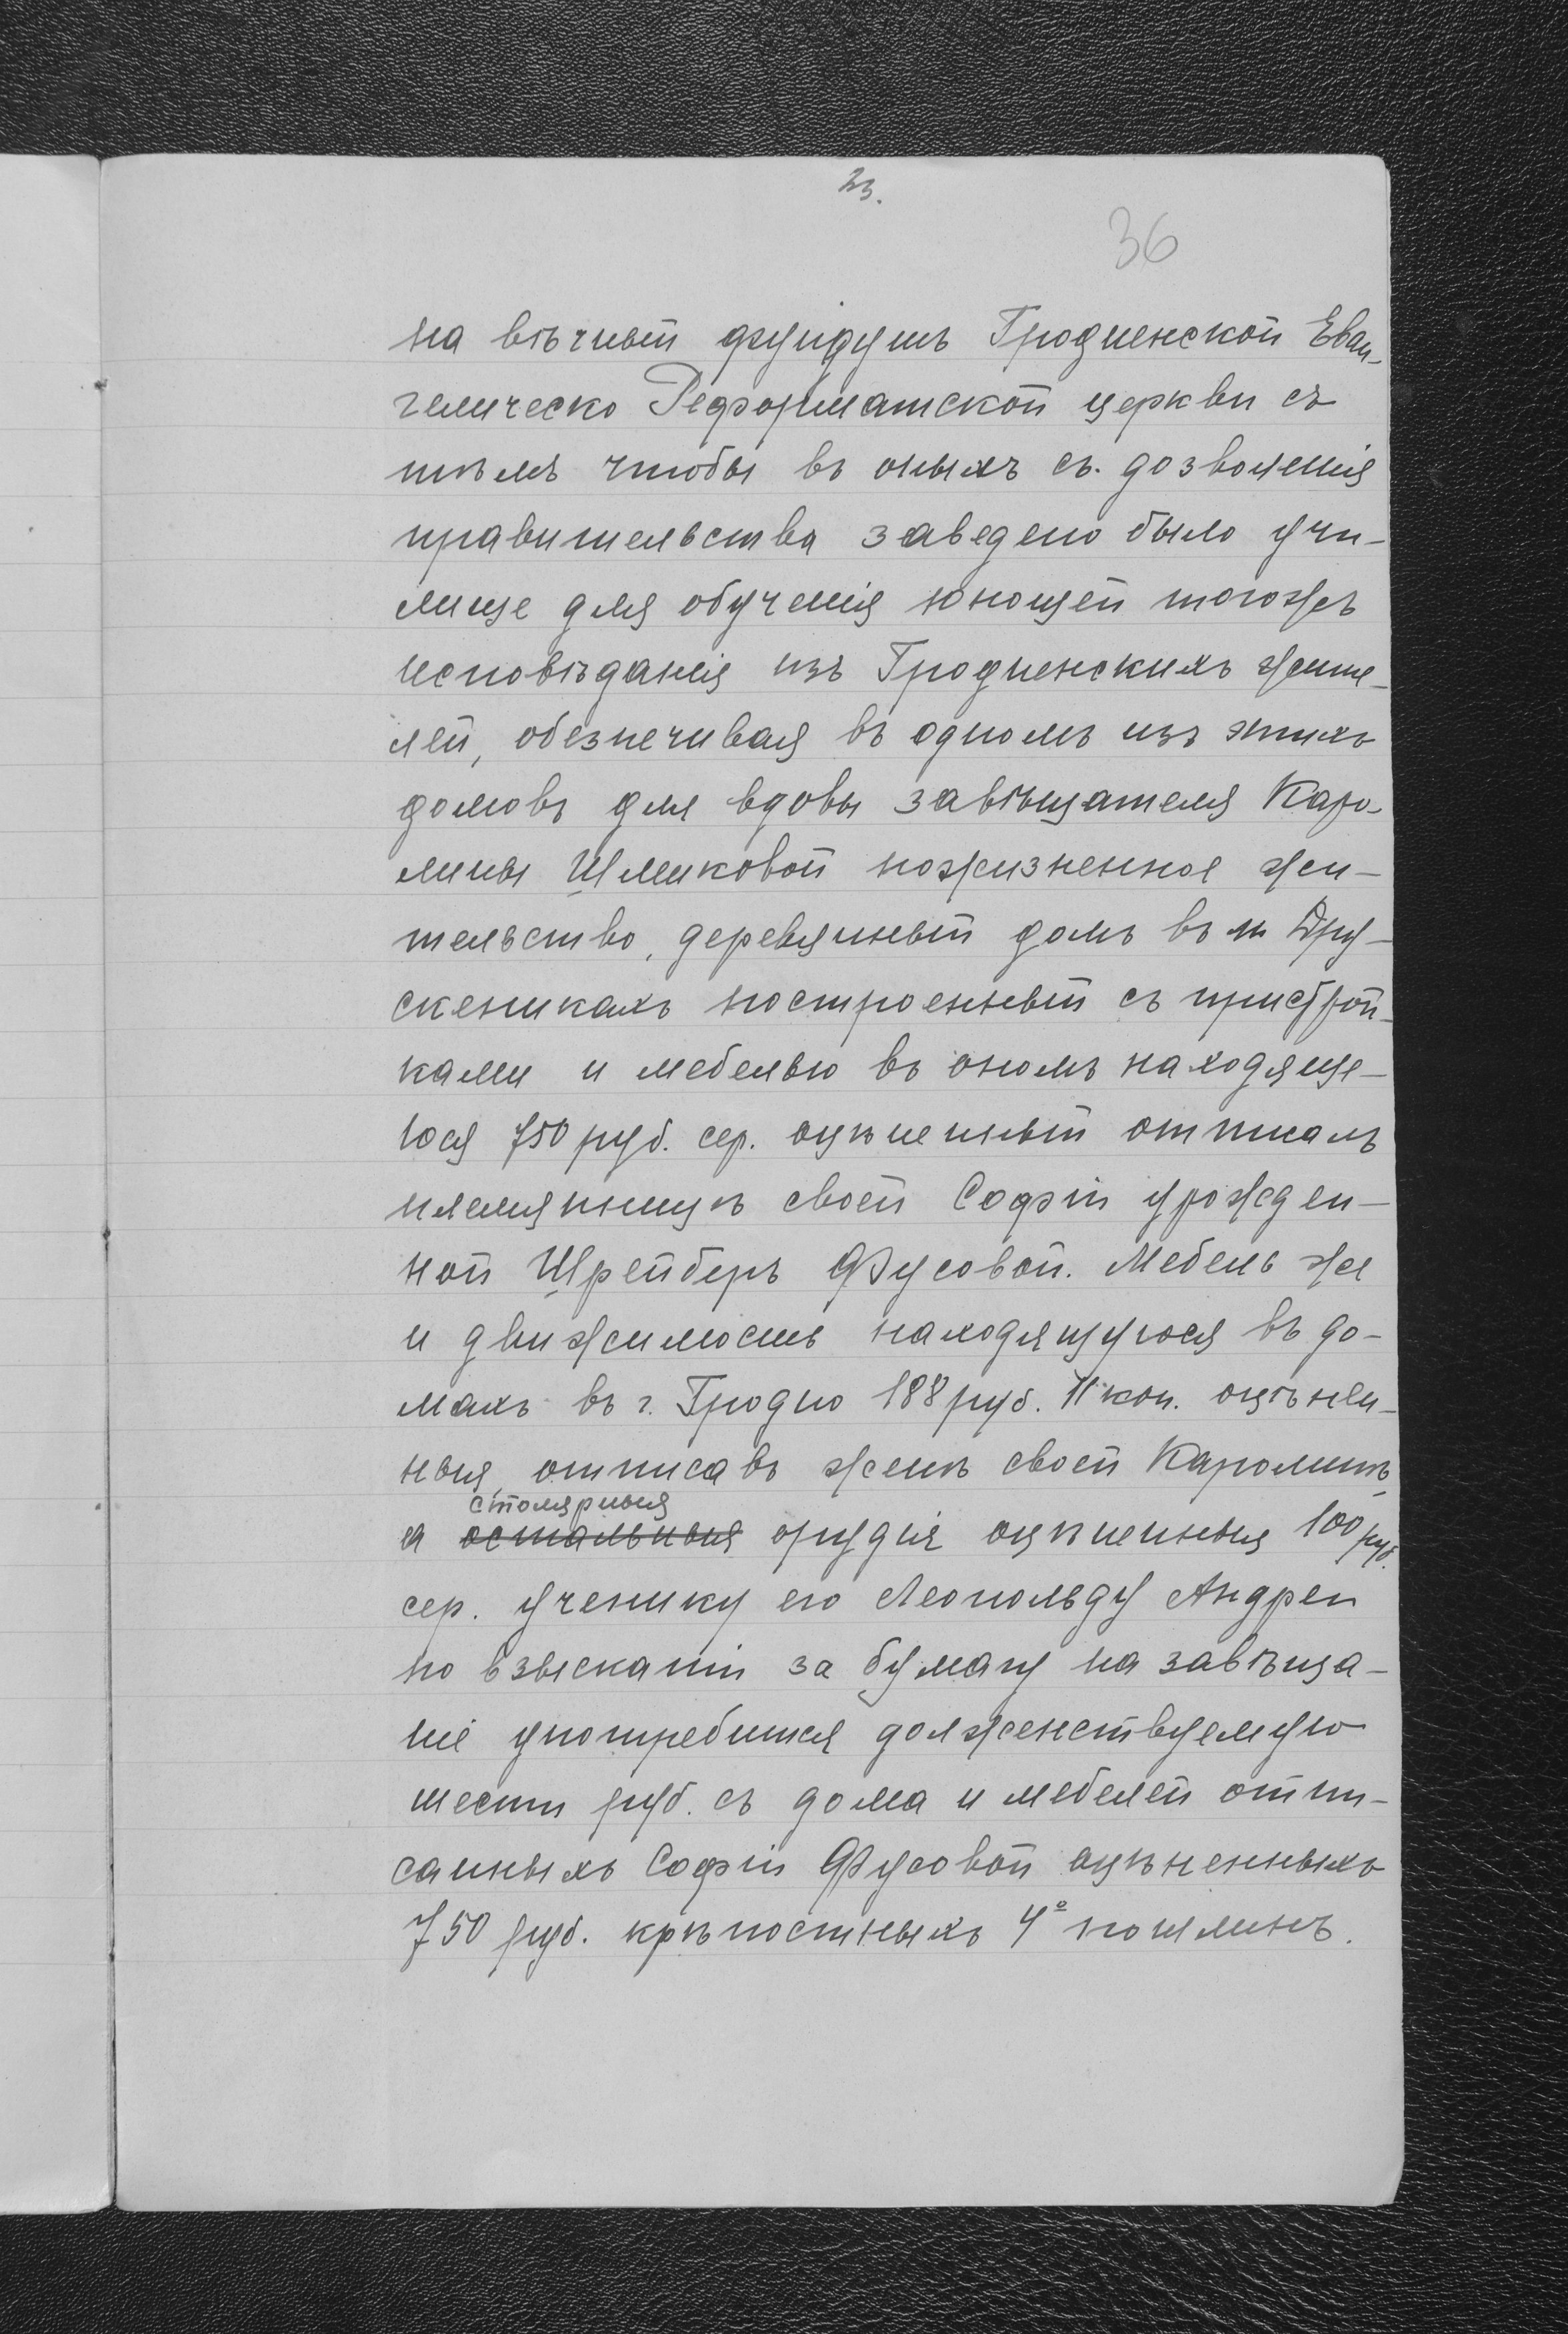 23.
36
на вѣчный фундушъ Гродненской Еван-
гелическо Реформатской церкви съ
тѣмъ чтобы въ оныхъ съ дозволенія
правительства заведено было учи-
лище для обученія юношей тогожъ
исповѣданія изъ Гродненскихъ жите-
лей, обезпечивая въ одномъ изъ этихъ
домовъ для вдовы завѣщателя Каро-
лины Шмиковой пожизненное жи-
тельство, деревянный домъ въ м. Дру-
скеникахъ построенный съ пристрой-
ками и мебелью въ ономъ находяще-
юся 750 руб. сер. оцѣненный отписалъ
племянницѣ своей Софіи урожден-
ной Шрейберъ Фусовой. Мебель же
и движимость находящуюся въ до-
махъ въ г. Гродно 188 руб. 11 коп. оцѣнен-
ныя, отписавъ женѣ своей Каролинѣ,
столярныя
а остальныя орудія оцѣненныя 100 руб.
сер. ученику его Леопольду Андреи
по взысканіи за бумагу на завѣща-
ніе употребится долженствуемую
шести руб. съ дома и мебелей отпи-
санныхъ Софіи Фусовой оцѣненныхъ
750 руб. крѣпостныхъ 4º пошлинъ.